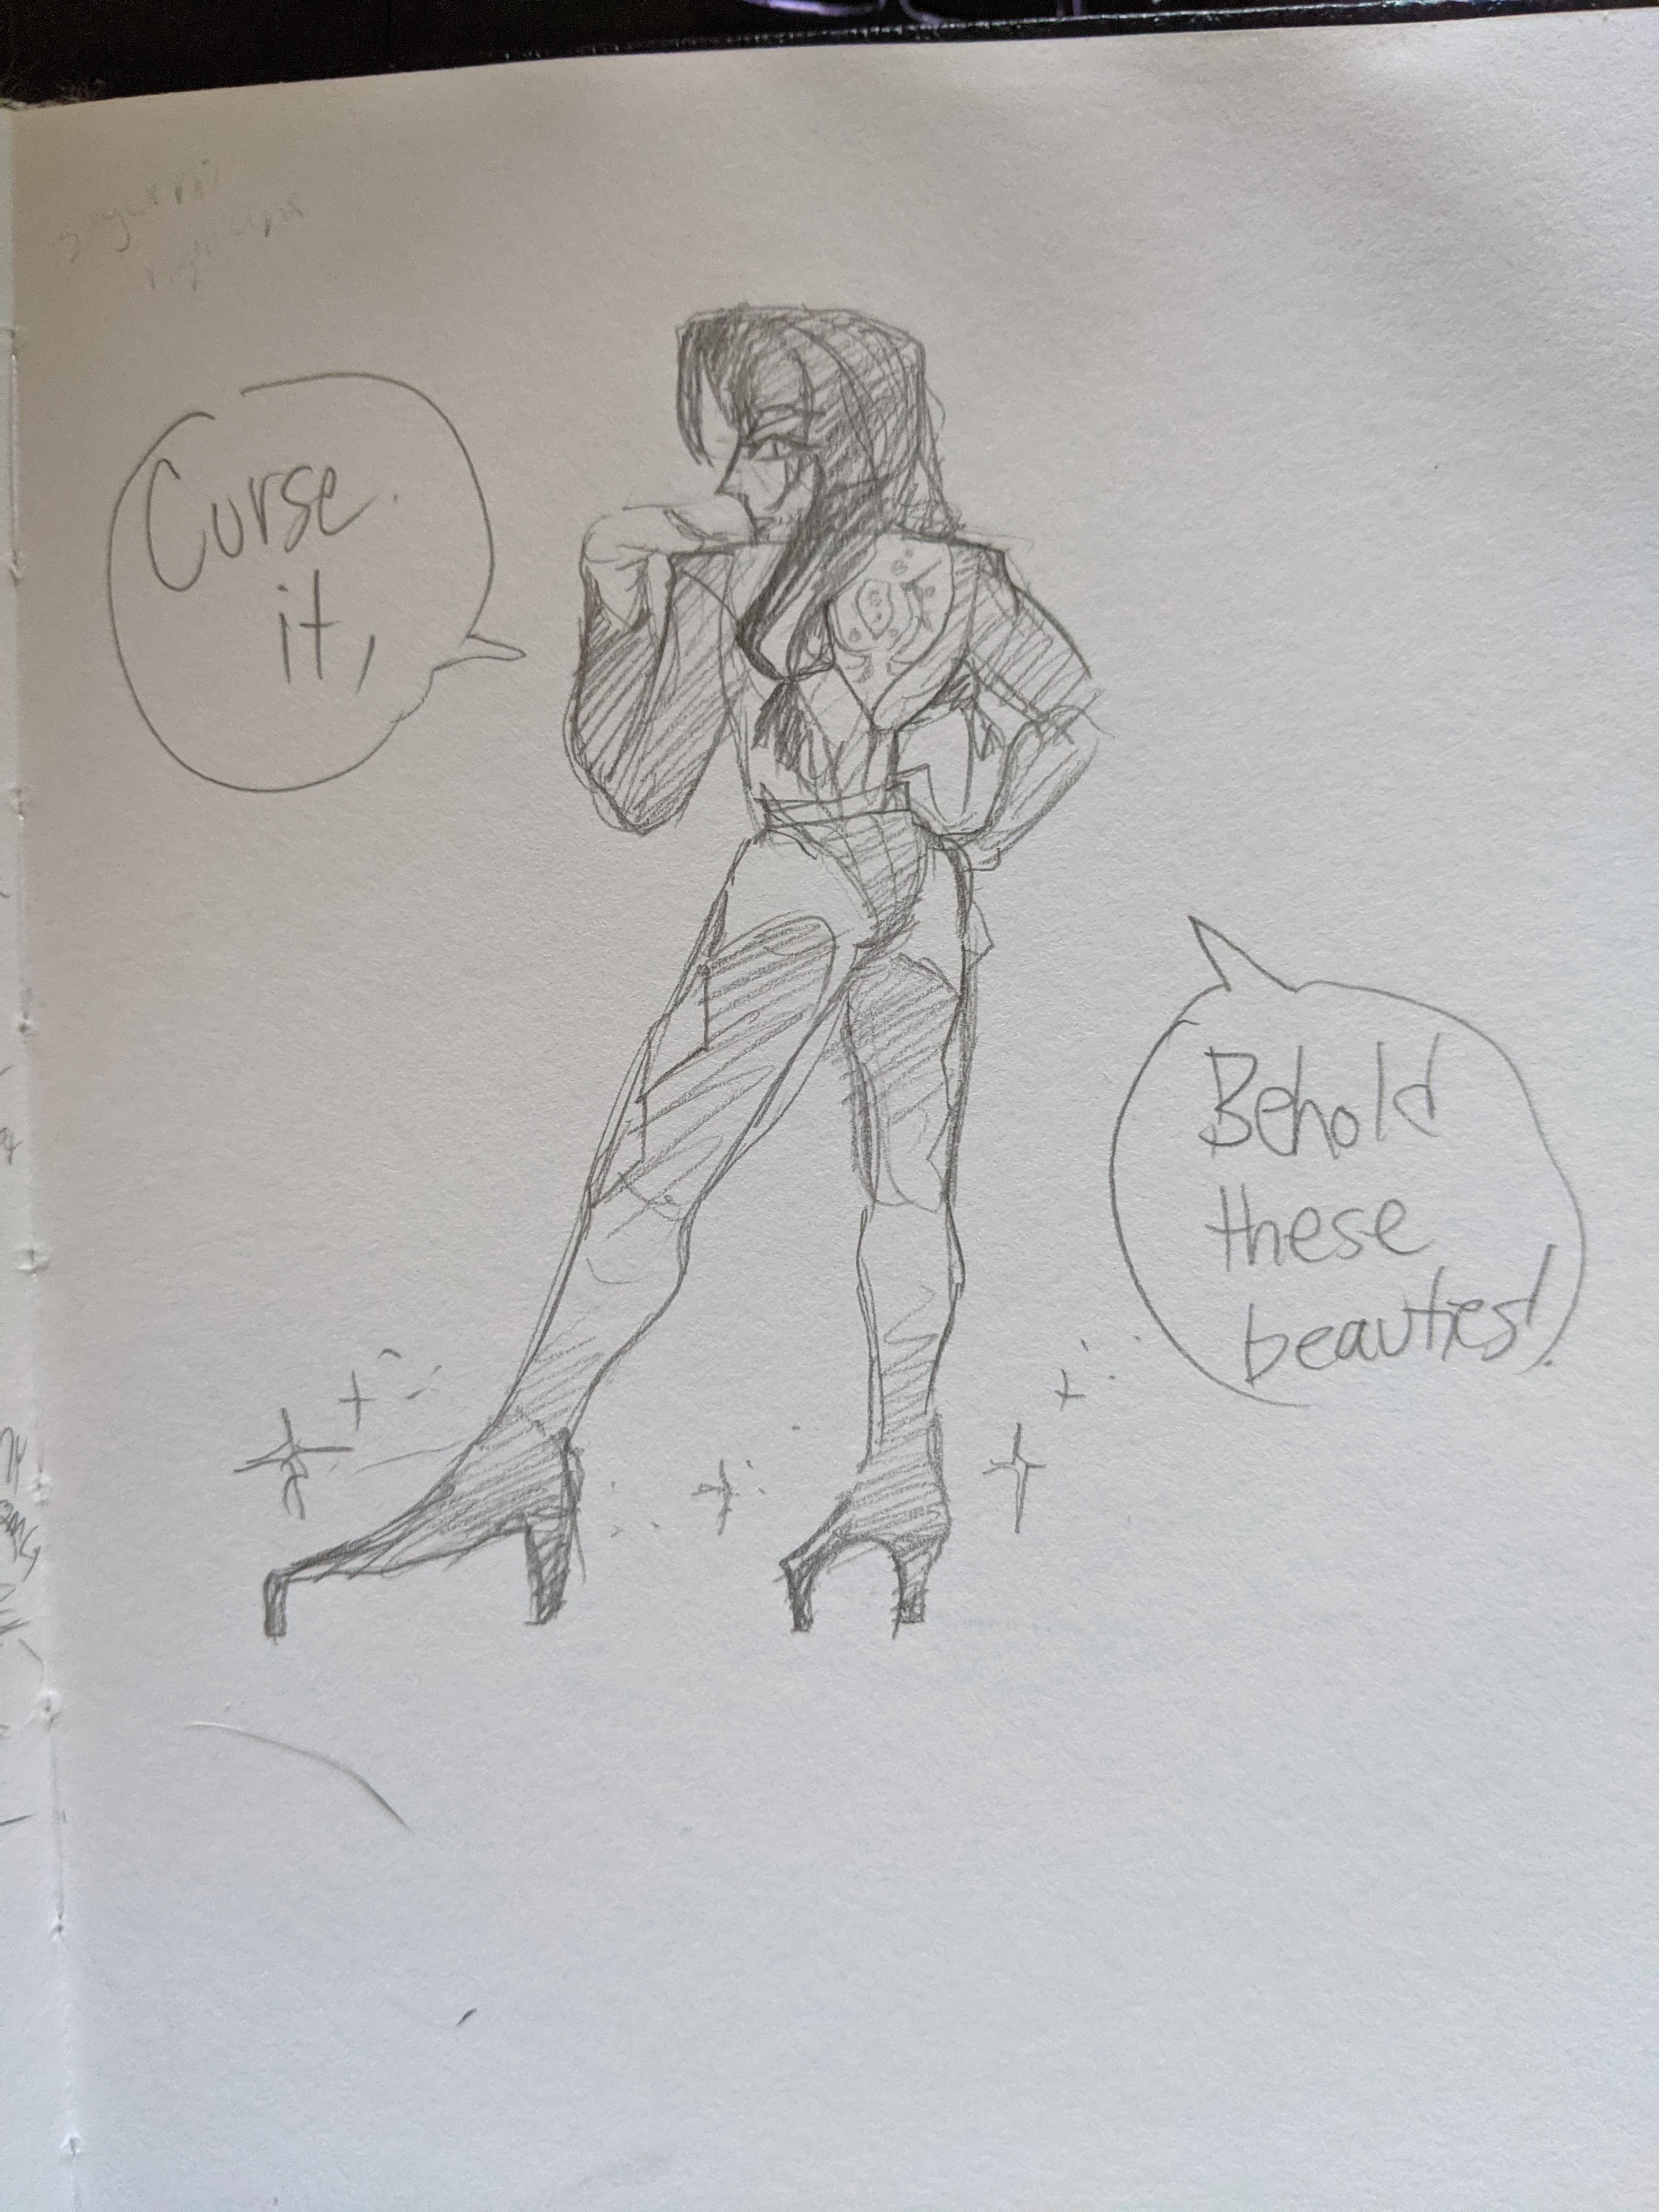 Curse
it,
Behold
these
beauties!